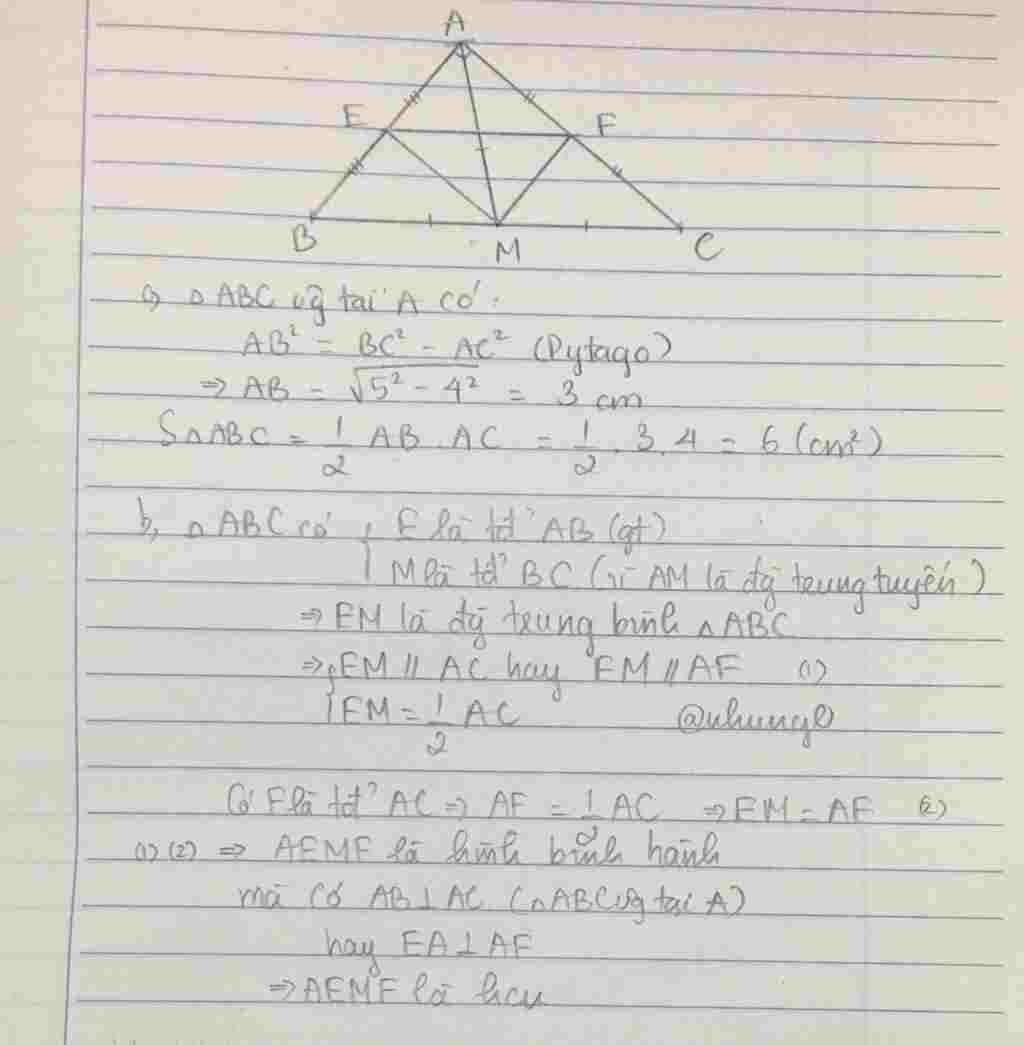 A
E
F
B
M
C
a, △ABC vg tại A có:
AB² = BC² - AC² (Pytago)
⇒ AB = √5² - 4² = 3 cm
S△ABC = 1/2 AB.AC = 1/2.3.4 = 6 (cm²)
b, △ABC có { E là tđ' AB (gt)
M là tđ' BC (vì AM là đg trung tuyến)
⇒ EM là đg trung bình △ABC
⇒ { EM // AC hay EM // AF (1)
EM = 1/2 AC @nhungl
Có F là tđ' AC ⇒ AF = 1/2 AC ⇒ EM = AF (2)
(1) (2) ⇒ AEMF là hình bình hành
mà có AB ⊥ AC (△ABC vg tại A)
hay EA ⊥ AF
⇒ AEMF là hcn